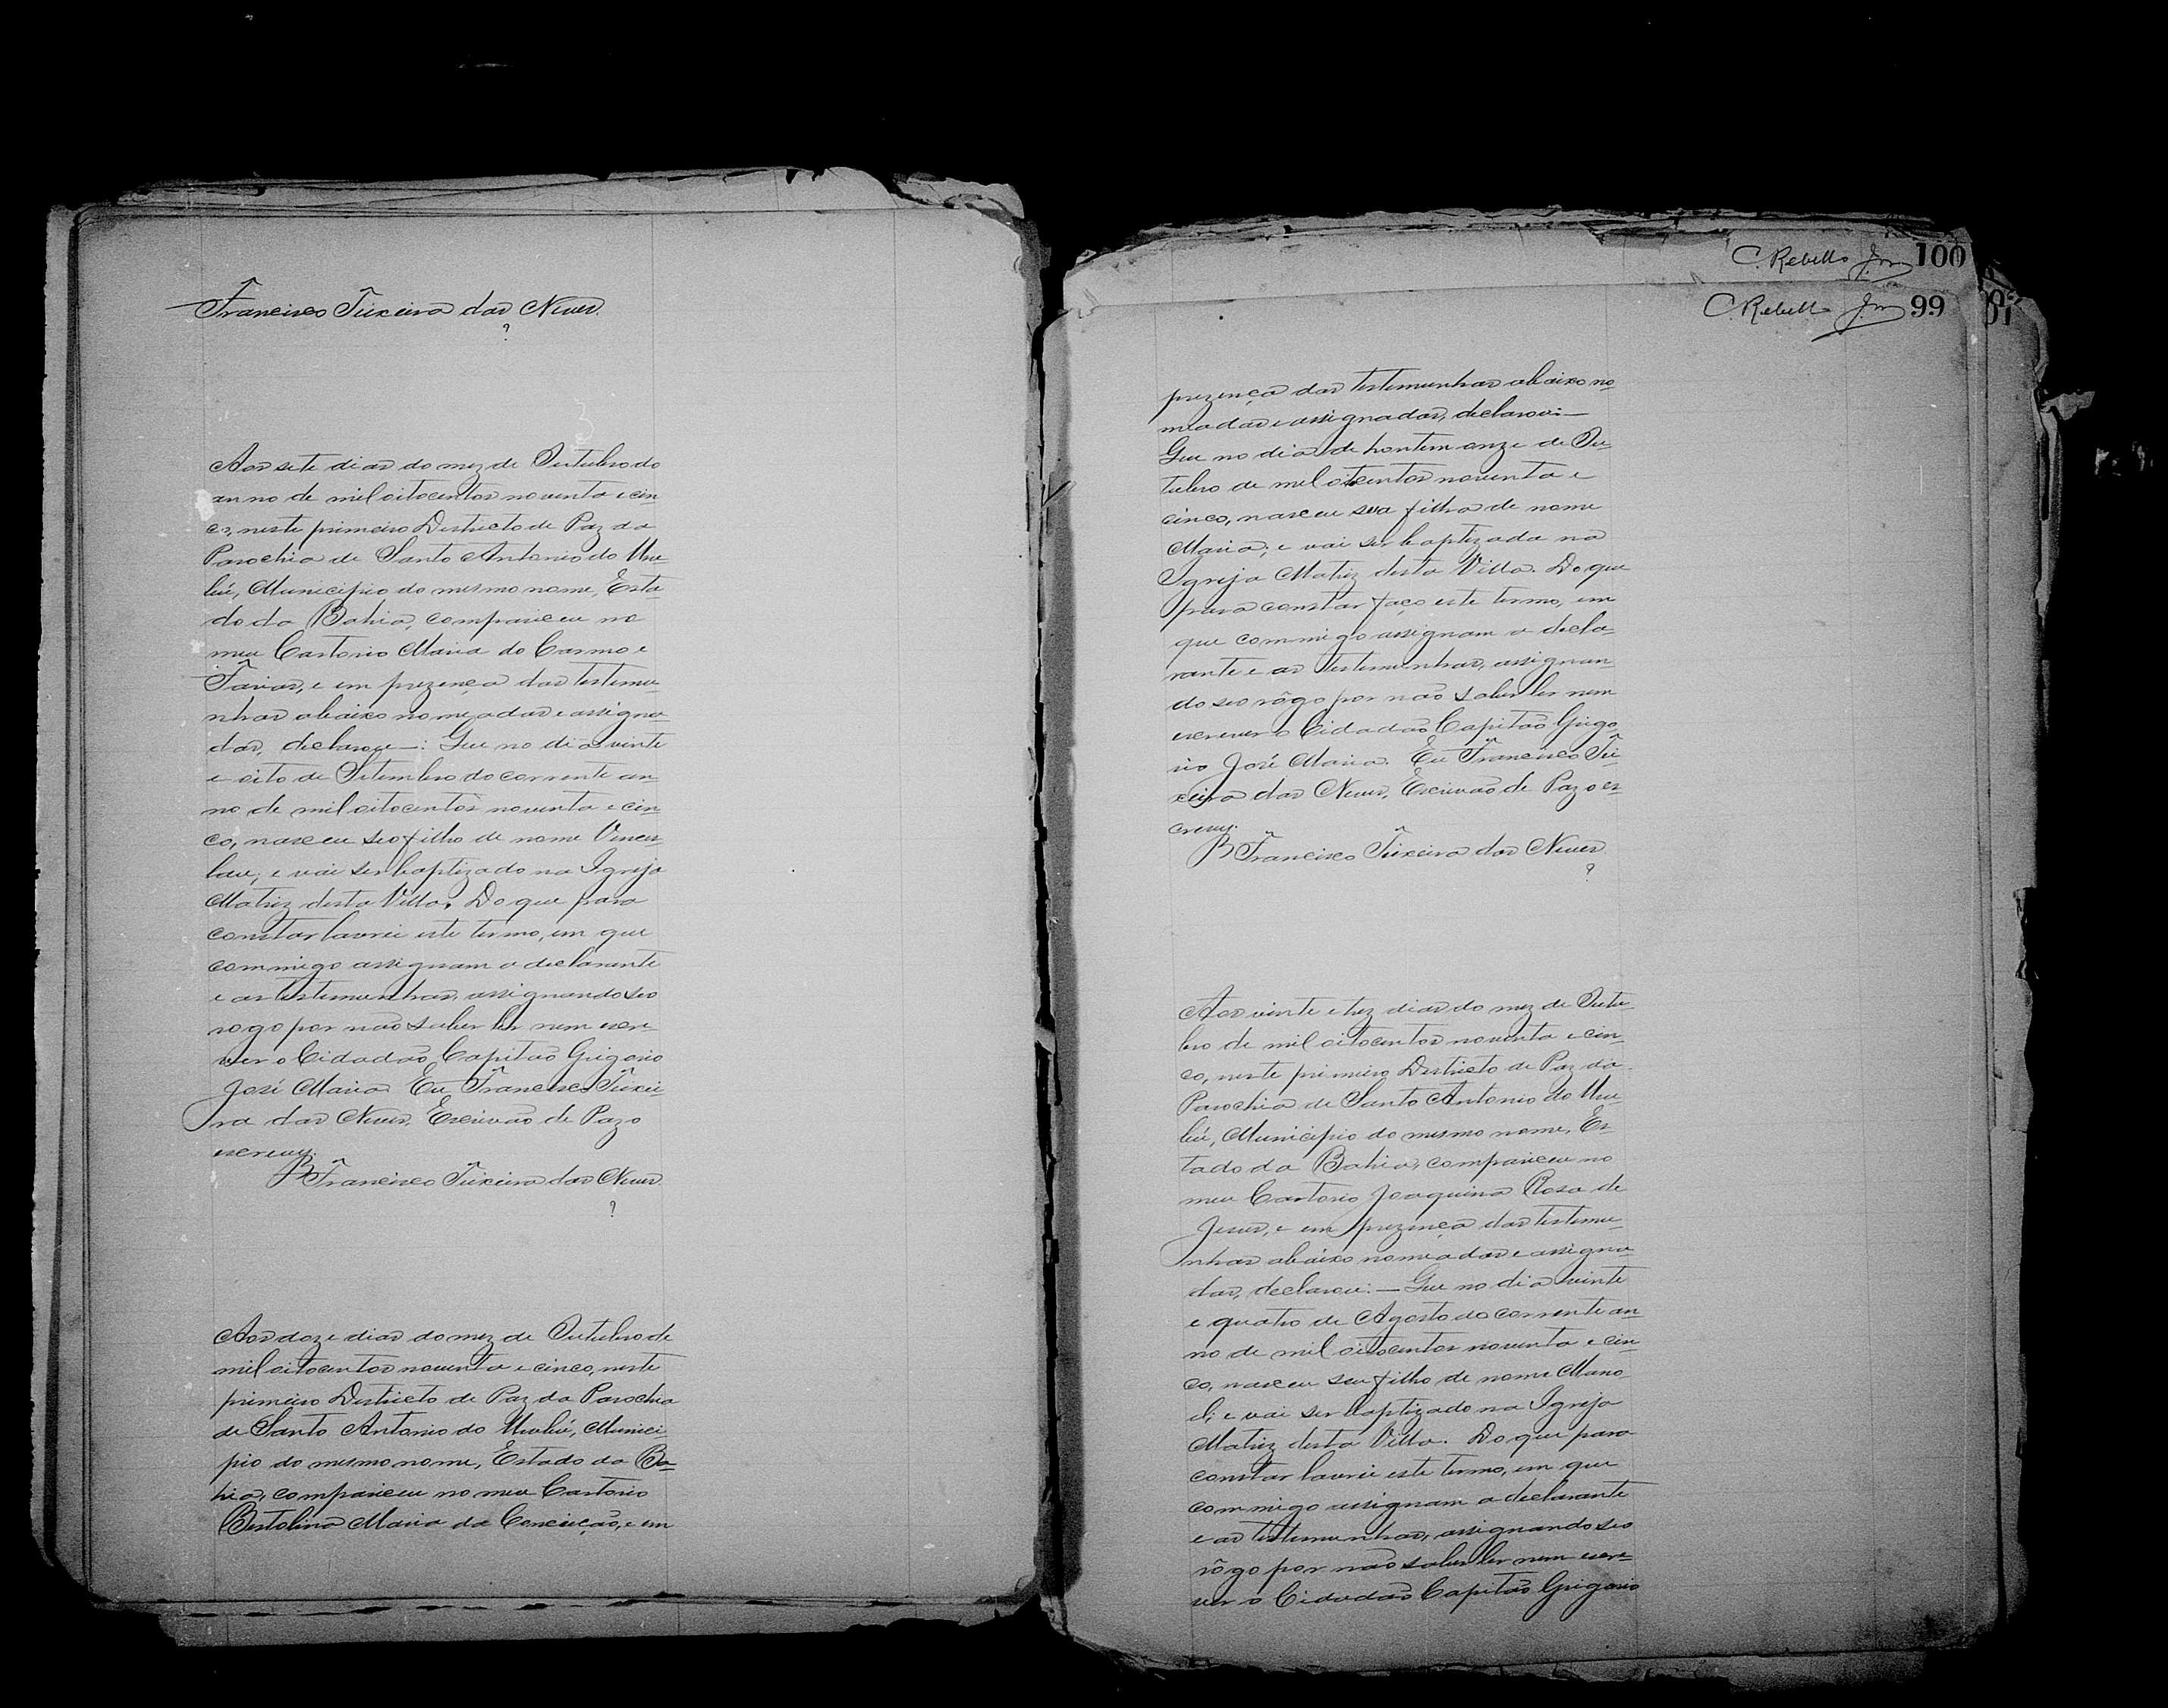 Francisco Teixeira das Neves.
Aos sete dias do mez de Outubro do
anno de mil oitocentos noventa e cin
co, neste primeiro Destricto de Paz da
Parochia de Santo Antonio do Uru
bú, Municipio do mesmo nome, Esta
do da Bahia, compareceu no
meu Cartorio Maria do Carmo e
e em prezença das testemu
nhas abaixo nomeadas e assigna
das, declarou—: Que no dia vinte
e oito de Setembro do corrente an
no de mil oitocentos noventa e cin
co, nasceu seo filho de nome Vences
lau; e vai ser baptizado na Igreja
Matriz desta Villa. Do que para
constar lavrei este termo, em que
commigo assignam a declarante
e as testemunhas, assignando seo
rogo por não saber ler nem escre
ver o Cidadão Capitão Grigorio
José Maria Eu Francisco Teixei
ra das Neves, Escrivão de Paz o
escrevy.
Francisco Teixeira das Neves
Aos doze dias do mez de Outubro de
mil oitocentos noventa e cinco, neste
primeiro Destricto de Paz da Parochia
de Santo Antonio do Urubú, Munici
pio do mesmo nome, Estado da Ba
hia, compareceu no meu Cartorio
Bertolina Maria da Conceição, e em
C. Rebello Jor 100
C. Rebello Jor 99
prezença das testemunhas abaixo no
meadas e assignadas, declarou:—
Que no dia de hontem onze de Ou
tubro de mil oitocentos noventa e
cinco, nasceu sua filha de nome
Maria; e vai ser baptizada na
Igreja Matriz desta Villa. Do que
para constar faço este termo, em
que commigo assignam a decla
rante e as testemunhas, assignan
do seo rôgo por não saber ler nem
escrever o Cidadão Capitão Grigo
rio José Maria. Eu Francisco Tei
xeira das Neves, Escrivão de Paz o es
crevy.
Francisco Teixeira das Neves
Aos vinte e trez dias do mez de Outu
bro de mil oitocentos noventa e cin
co, neste primeiro Destricto de Paz da
Parochia de Santo Antonio do Uru
bú, Municipio do mesmo nome, Es
tado da Bahia, compareceu no
meu Cartorio Joaquina Rosa de
Jesus, e em prezença das testemu
nhas abaixo nomeadas e assigna
das, declarou:— Que no dia vinte
e quatro de Agosto do corrente an
no de mil oitocentos noventa e cin
co, nasceu seu filho de nome Mano
el; e vai ser baptizado na Igreja
Matriz desta Villa. Do que para
constar lavrei este termo, em que
commigo assignam a declarante
e as testemunhas, assignando seo
rôgo por não saber ler nem escre
ver o Cidadão Capitão Grigorio